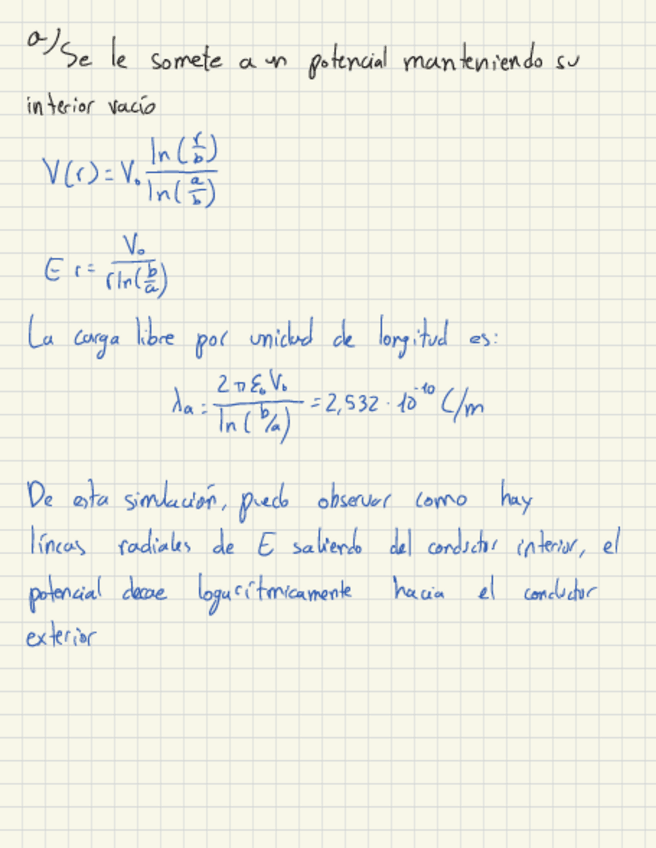 a) Se le somete a un potencial manteniendo su
interior vacío
V(r) = V₀ ln(r/b) / ln(a/b)
E r = V₀ / (r ln(b/a))
La carga libre por unidad de longitud es:
λa = 2πε₀V₀ / ln(b/a) = 2,532 · 10⁻¹⁰ C/m
De esta simulación, puedo observar como hay
líneas radiales de E saliendo del conductor interior, el
potencial decae logarítmicamente hacia el conductor
exterior